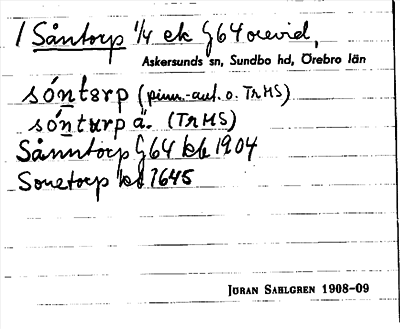 1 Såntorp 1/4 ek G64 orevid,
Askersunds sn, Sundbo hd, Örebro län
sóntorp (pinn.-auf. o. TrHS)
sónturp ä. (TrHS)
Sånntorp G64 kb 1904
Sonetorp 1645
JÖRAN SAHLGREN 1908-09